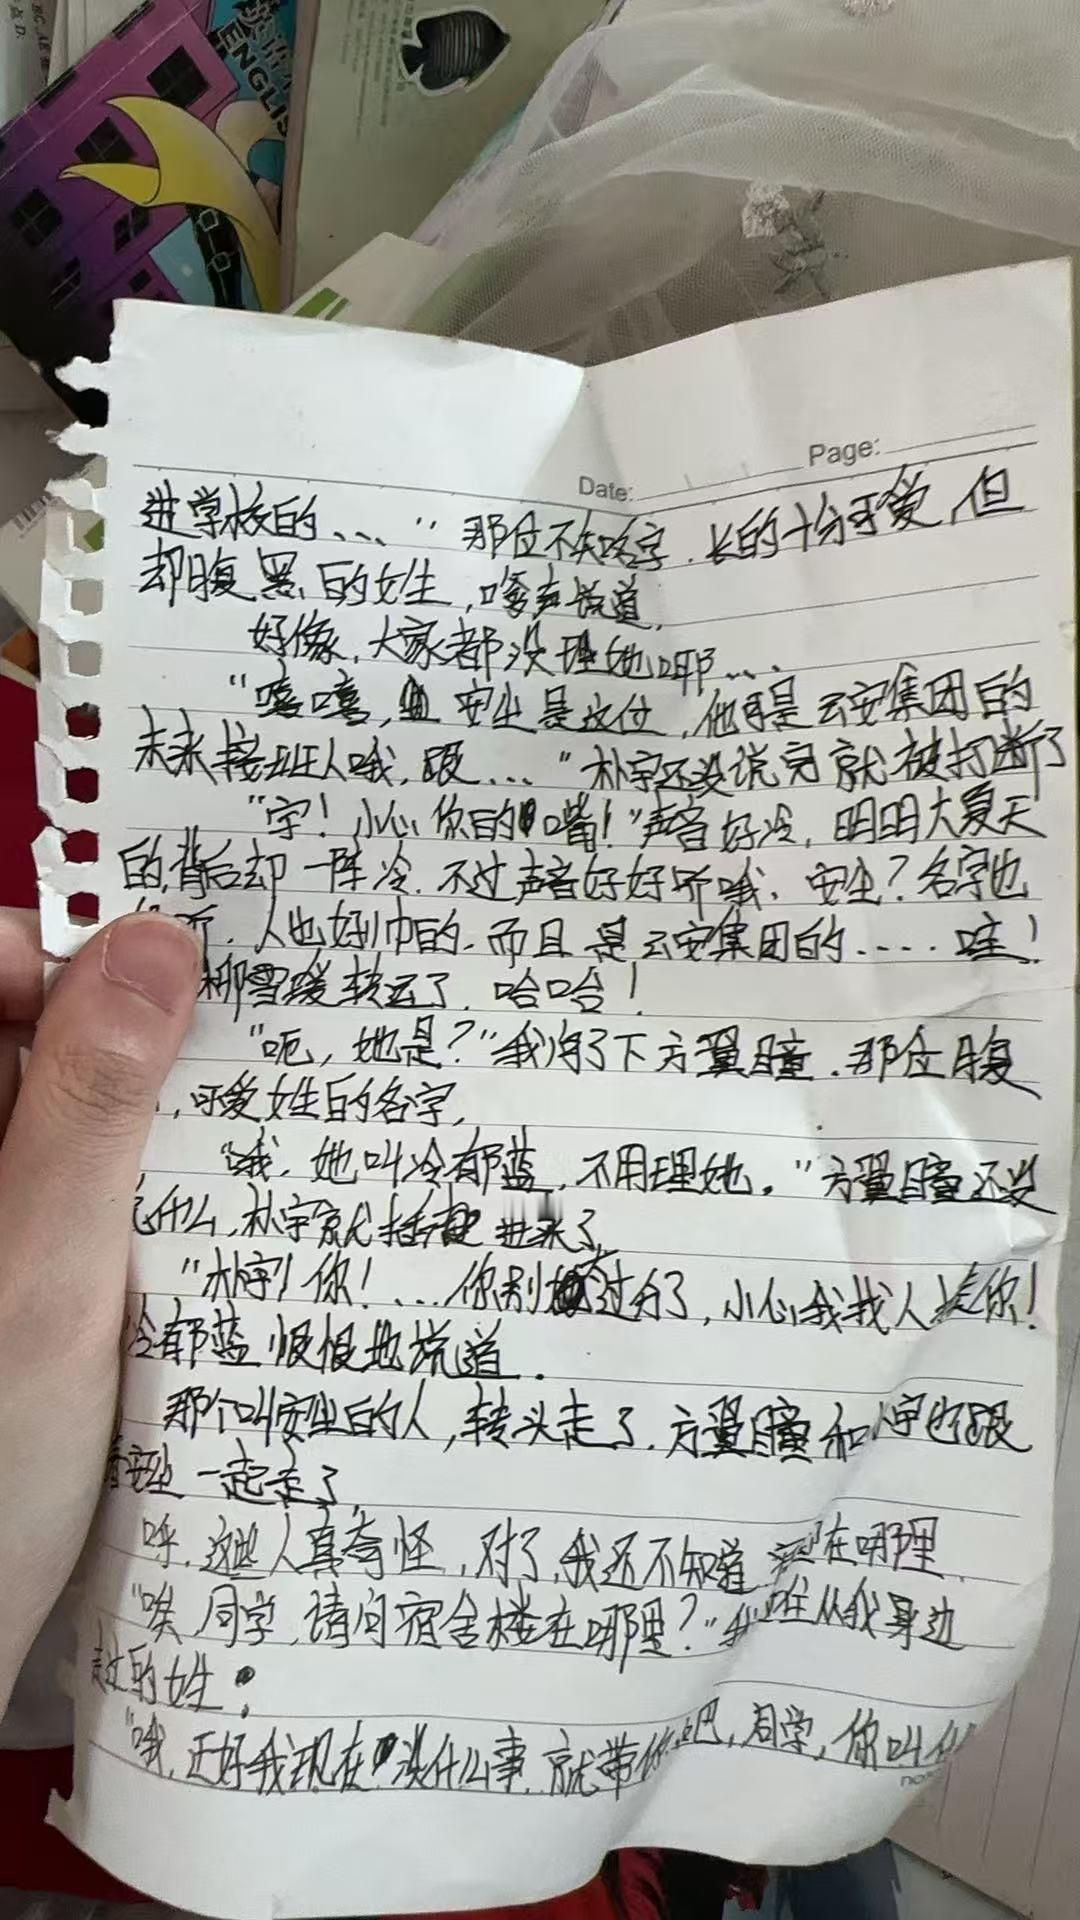 ENGLIS
Page:
Date:
进学校的、、、”那位不知名字.长的十分可爱,但
却腹黑的女生,嗲声说道.
好像,大家都没理她耶、、、
“嘻嘻,安尘是这位,他可是云安集团的
未来接班人哦,跟、、、”朴宇还没说完就被打断了
“宇!小心你的嘴!”声音好冷,明明大夏天
的,背后却一阵冷.不过声音好好听哦、安尘?名字也
听.人也好帅的.而且是云安集团的、、、、哇!
柳雪瑗转运了.哈哈!
“呃,她是?”我问了下方翼瞳.那位腹
,可爱女生的名字,
“哦,她叫冷郁蓝,不用理她.”方翼瞳还没
什么,朴宇就插进来了,
“朴宇!你!、、、你别太过分了,小心我找人揍你!
冷郁蓝恨恨地说道.
那个叫安尘的人,转头走了.方翼瞳和宇也跟
着安尘一起走了,
呼.这些人真奇怪,对了,我还不知道在哪里.
“唉,同学,请问宿舍楼在哪里?”我从我身边
走过的女生:
“哦,还好我现在没什么事.就带你吧,同学,你叫什